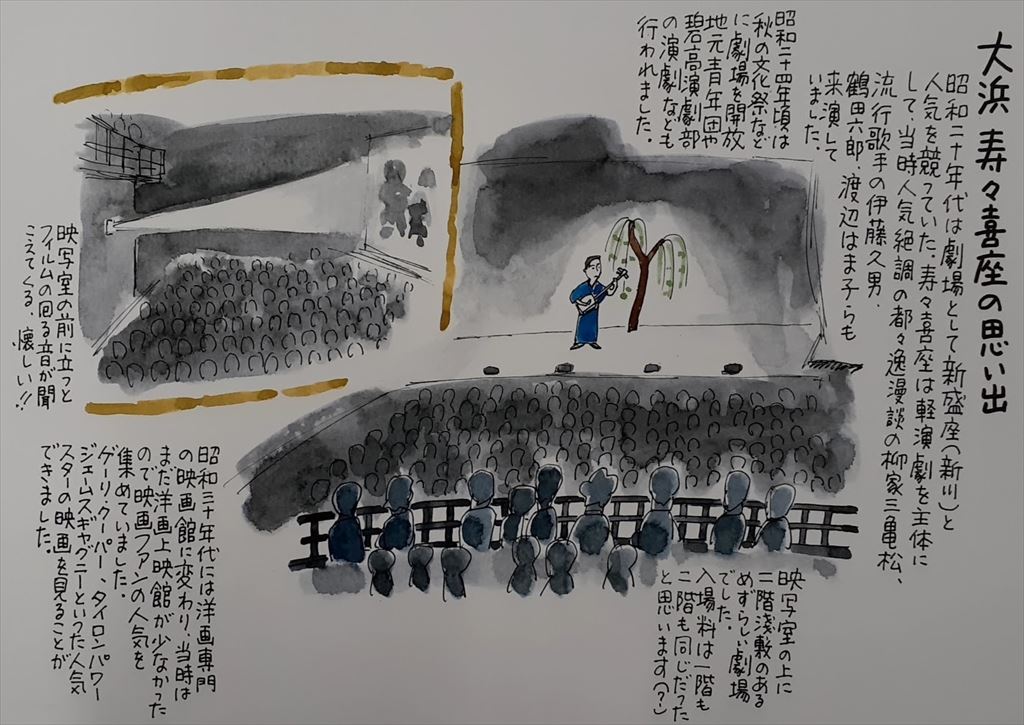 大浜 寿々喜座の思い出
昭和二十年代は劇場として新盛座(新川)と
人気を競っていた。寿々喜座は軽演劇を主体に
して、当時人気絶調の都々逸漫談の柳家三亀松、
流行歌手の伊藤久男、
鶴田六郎、渡辺はま子らも
来演して
いました。
昭和二十四年頃は
秋の文化祭など
に劇場を開放
地元青年団や
碧高演劇部
の演劇なども
行われました。
映写室の前に立つと
フィルムの回る音が聞
こえてくる、懐しい!!
映写室の上に
二階浅敷のある
めずらしい劇場
でした。
入場料は一階も
二階も同じだった
と思います(?)
昭和三十年代には洋画専門
の映画館に変わり、当時は
まだ洋画上映館が少なかった
ので映画ファンの人気を
集めていました。
ゲーリ・クーパー、タイロンパワー
ジェームスギャグニーといった人気
スターの映画を見ることが
できました。